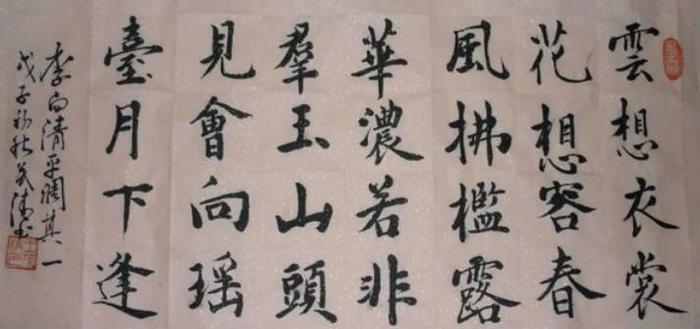 雲想衣裳
花想容春
風拂檻露
華濃若非
羣玉山頭
見會向瑶
臺月下逢
李白清平調其一
戊子初秋